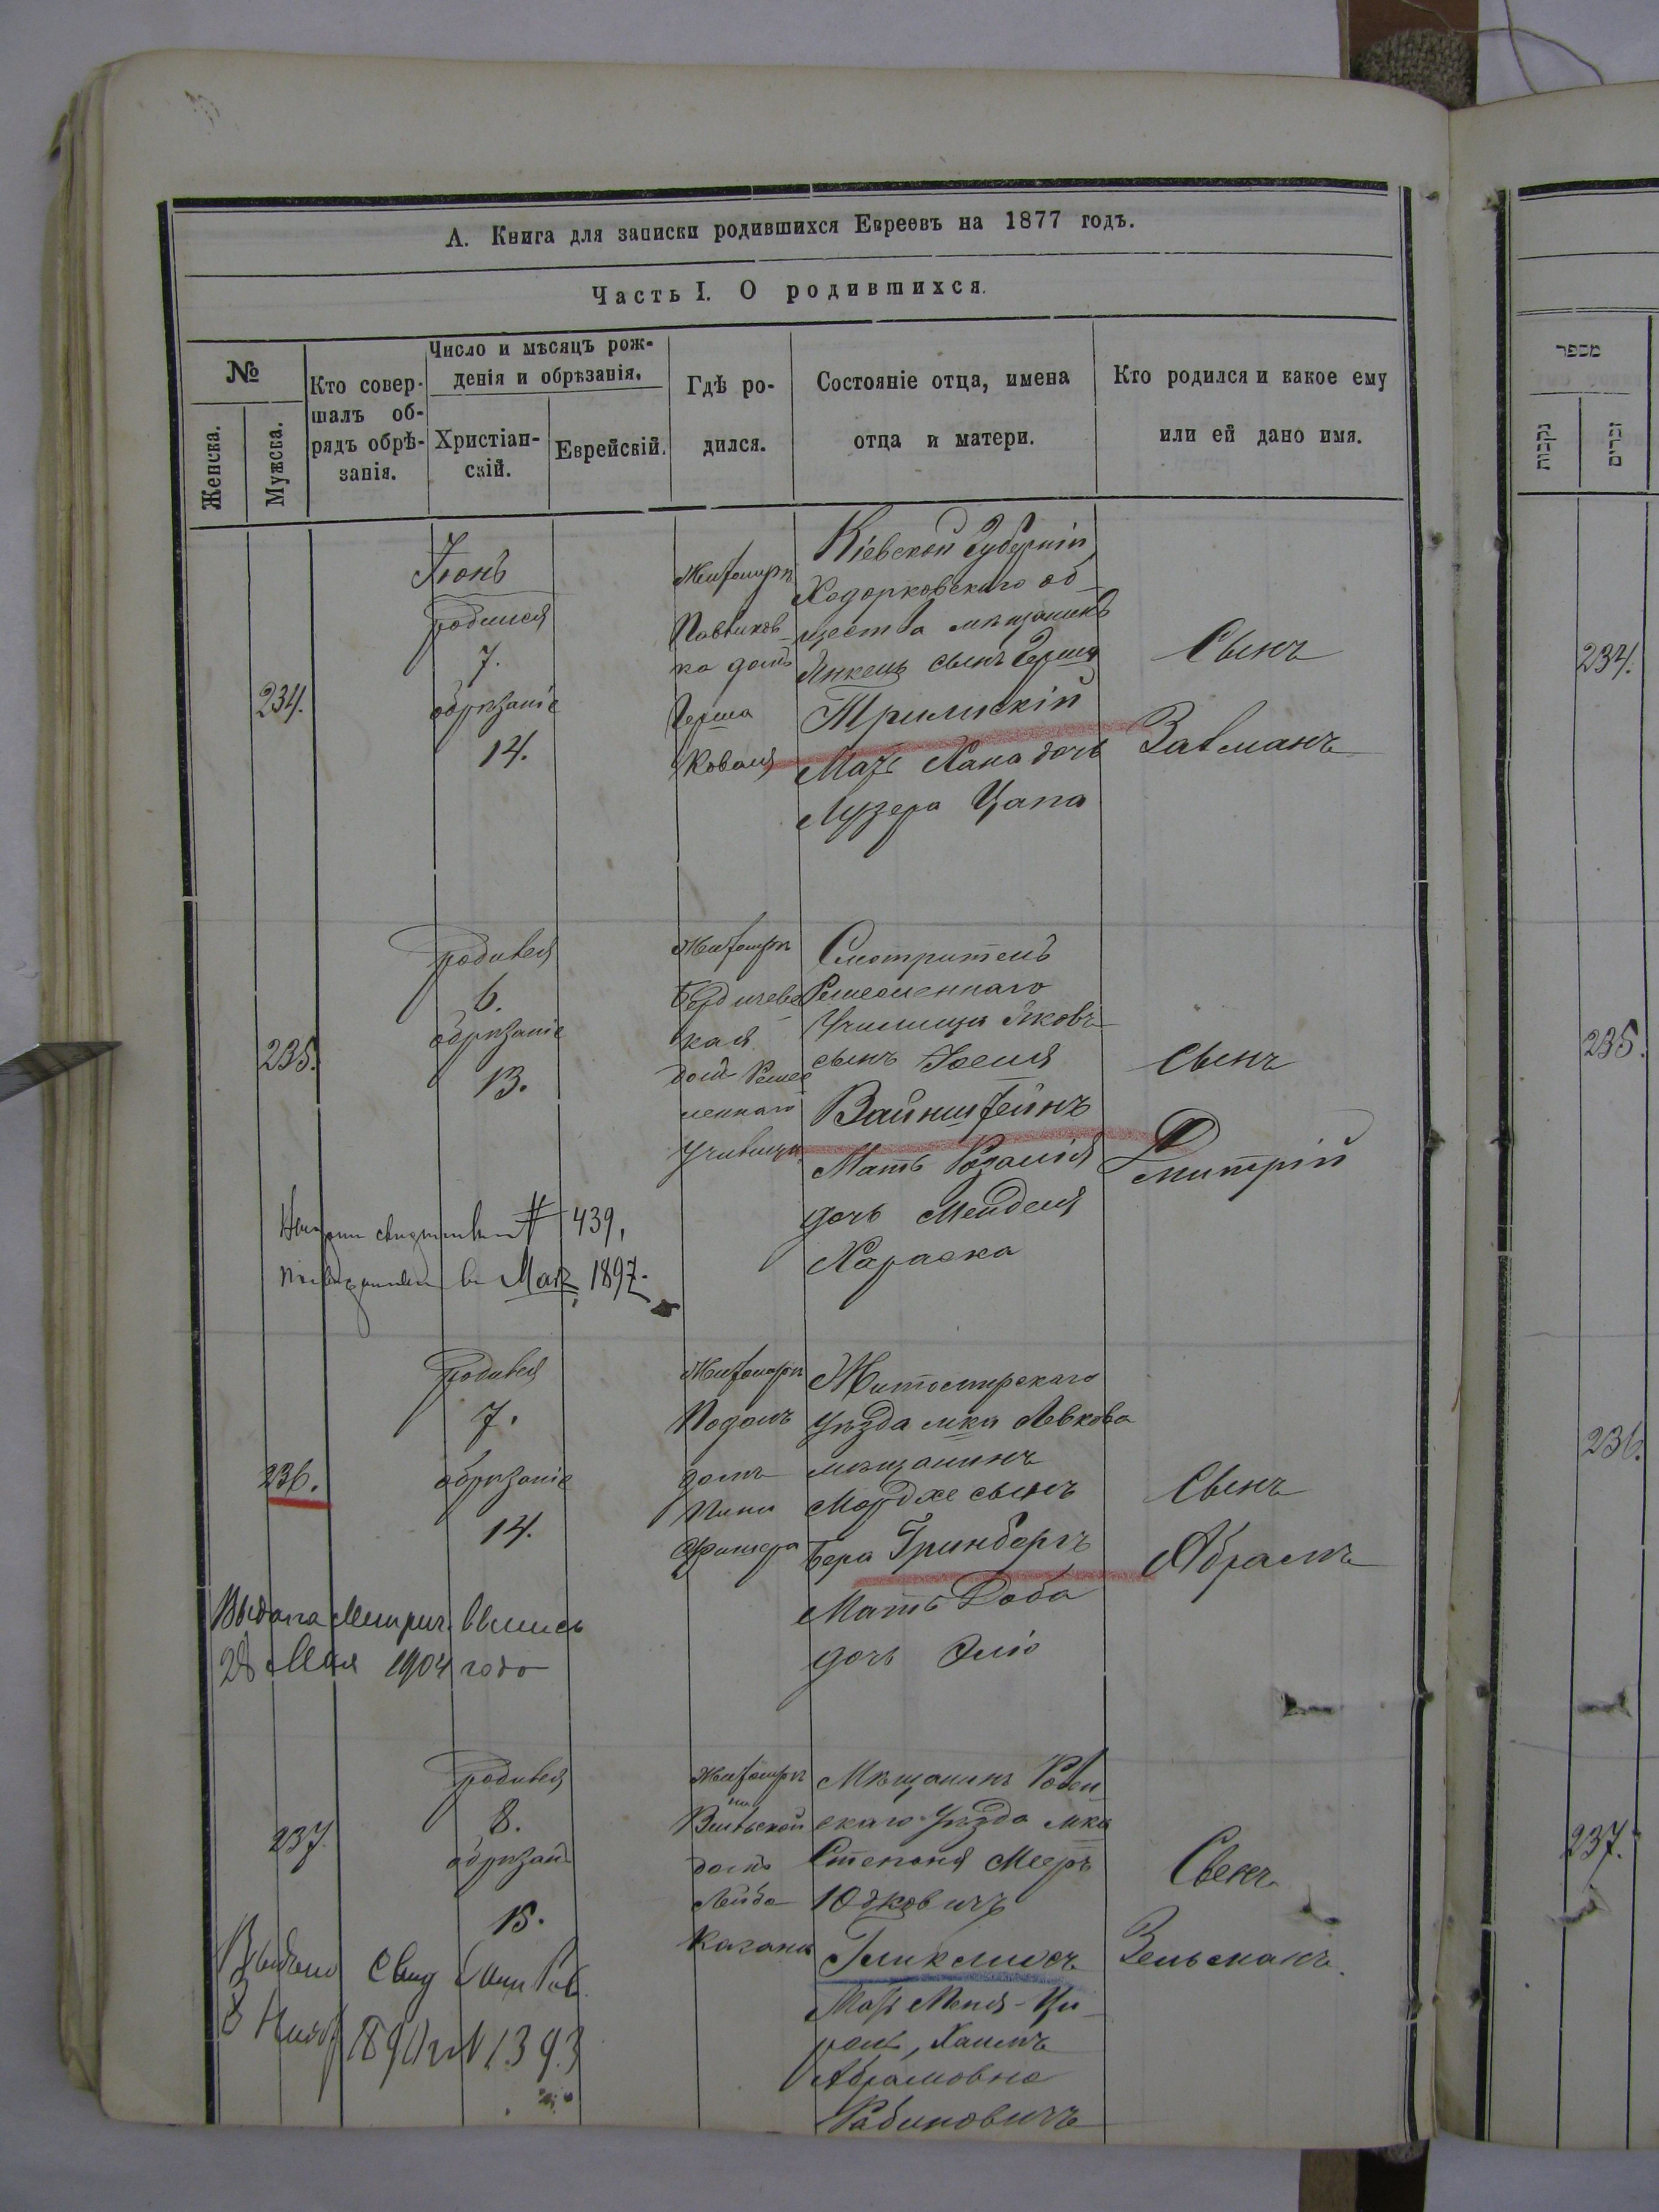 А. Книга для записки родившихся Евреевъ на 1877 годъ.
Часть I. О родившихся.
№
Женска.
Мужска.
Кто совер-
шалъ об-
рядъ обрѣ-
занія.
Число и мѣсяцъ рож-
денія и обрѣзанія.
Христіан-
скій.
Еврейскій.
Гдѣ ро-
дился.
Состояніе отца, имена
отца и матери.
Кто родился и какое ему
или ей дано имя.
234.
Іюнь
родился
7.
обрѣзаніе
14.
Житомиръ
домъ
Герша
Коваля
Кіевской Губерніи
Ходорковскаго об-
щества мѣщанинъ
Янкель сынъ Герша
Трилискій
Мать Хана дочь
Лузера Цапа
Сынъ
Залманъ
235.
родился
6.
обрѣзаніе
13.
Житомиръ
Бердичевс
кая
домъ Ремес
леннаго
Училища
Смотритель
Ремесленнаго
Училища Яковъ
сынъ Іоселя
Вайнштейнъ
Мать Розалія
дочь Менделя
Хараска
Сынъ
Дмитрій
439,
1897.
236.
родился
7.
обрѣзаніе
14.
Житомиръ
Подолъ
домъ
Пини
Житомирскаго
Уѣзда мка Левкова
мѣщанинъ
Мордхе сынъ
Бера Гринбергъ
Мать Доба
дочь Эліо
Сынъ
Абрамъ
Выдана Метрич. Выпись
28 Мая 1904 года
237.
родился
8.
обрѣзан
15.
Житомиръ
на
Вильской
домъ
Лейба
Кагана
Мѣщанинъ Ровен
скаго Уѣзда мка
Степаня Мееръ
Юдковичъ
Гликлихъ
Мать Меня-Ци
, Хаимъ
Абрамовна
Рабиновичъ
Сынъ
Зельманъ.
Выдано Свид
8 Нояб 1890 г N 1393
מספר
נקבות
זכרים
234.
235.
236.
237.